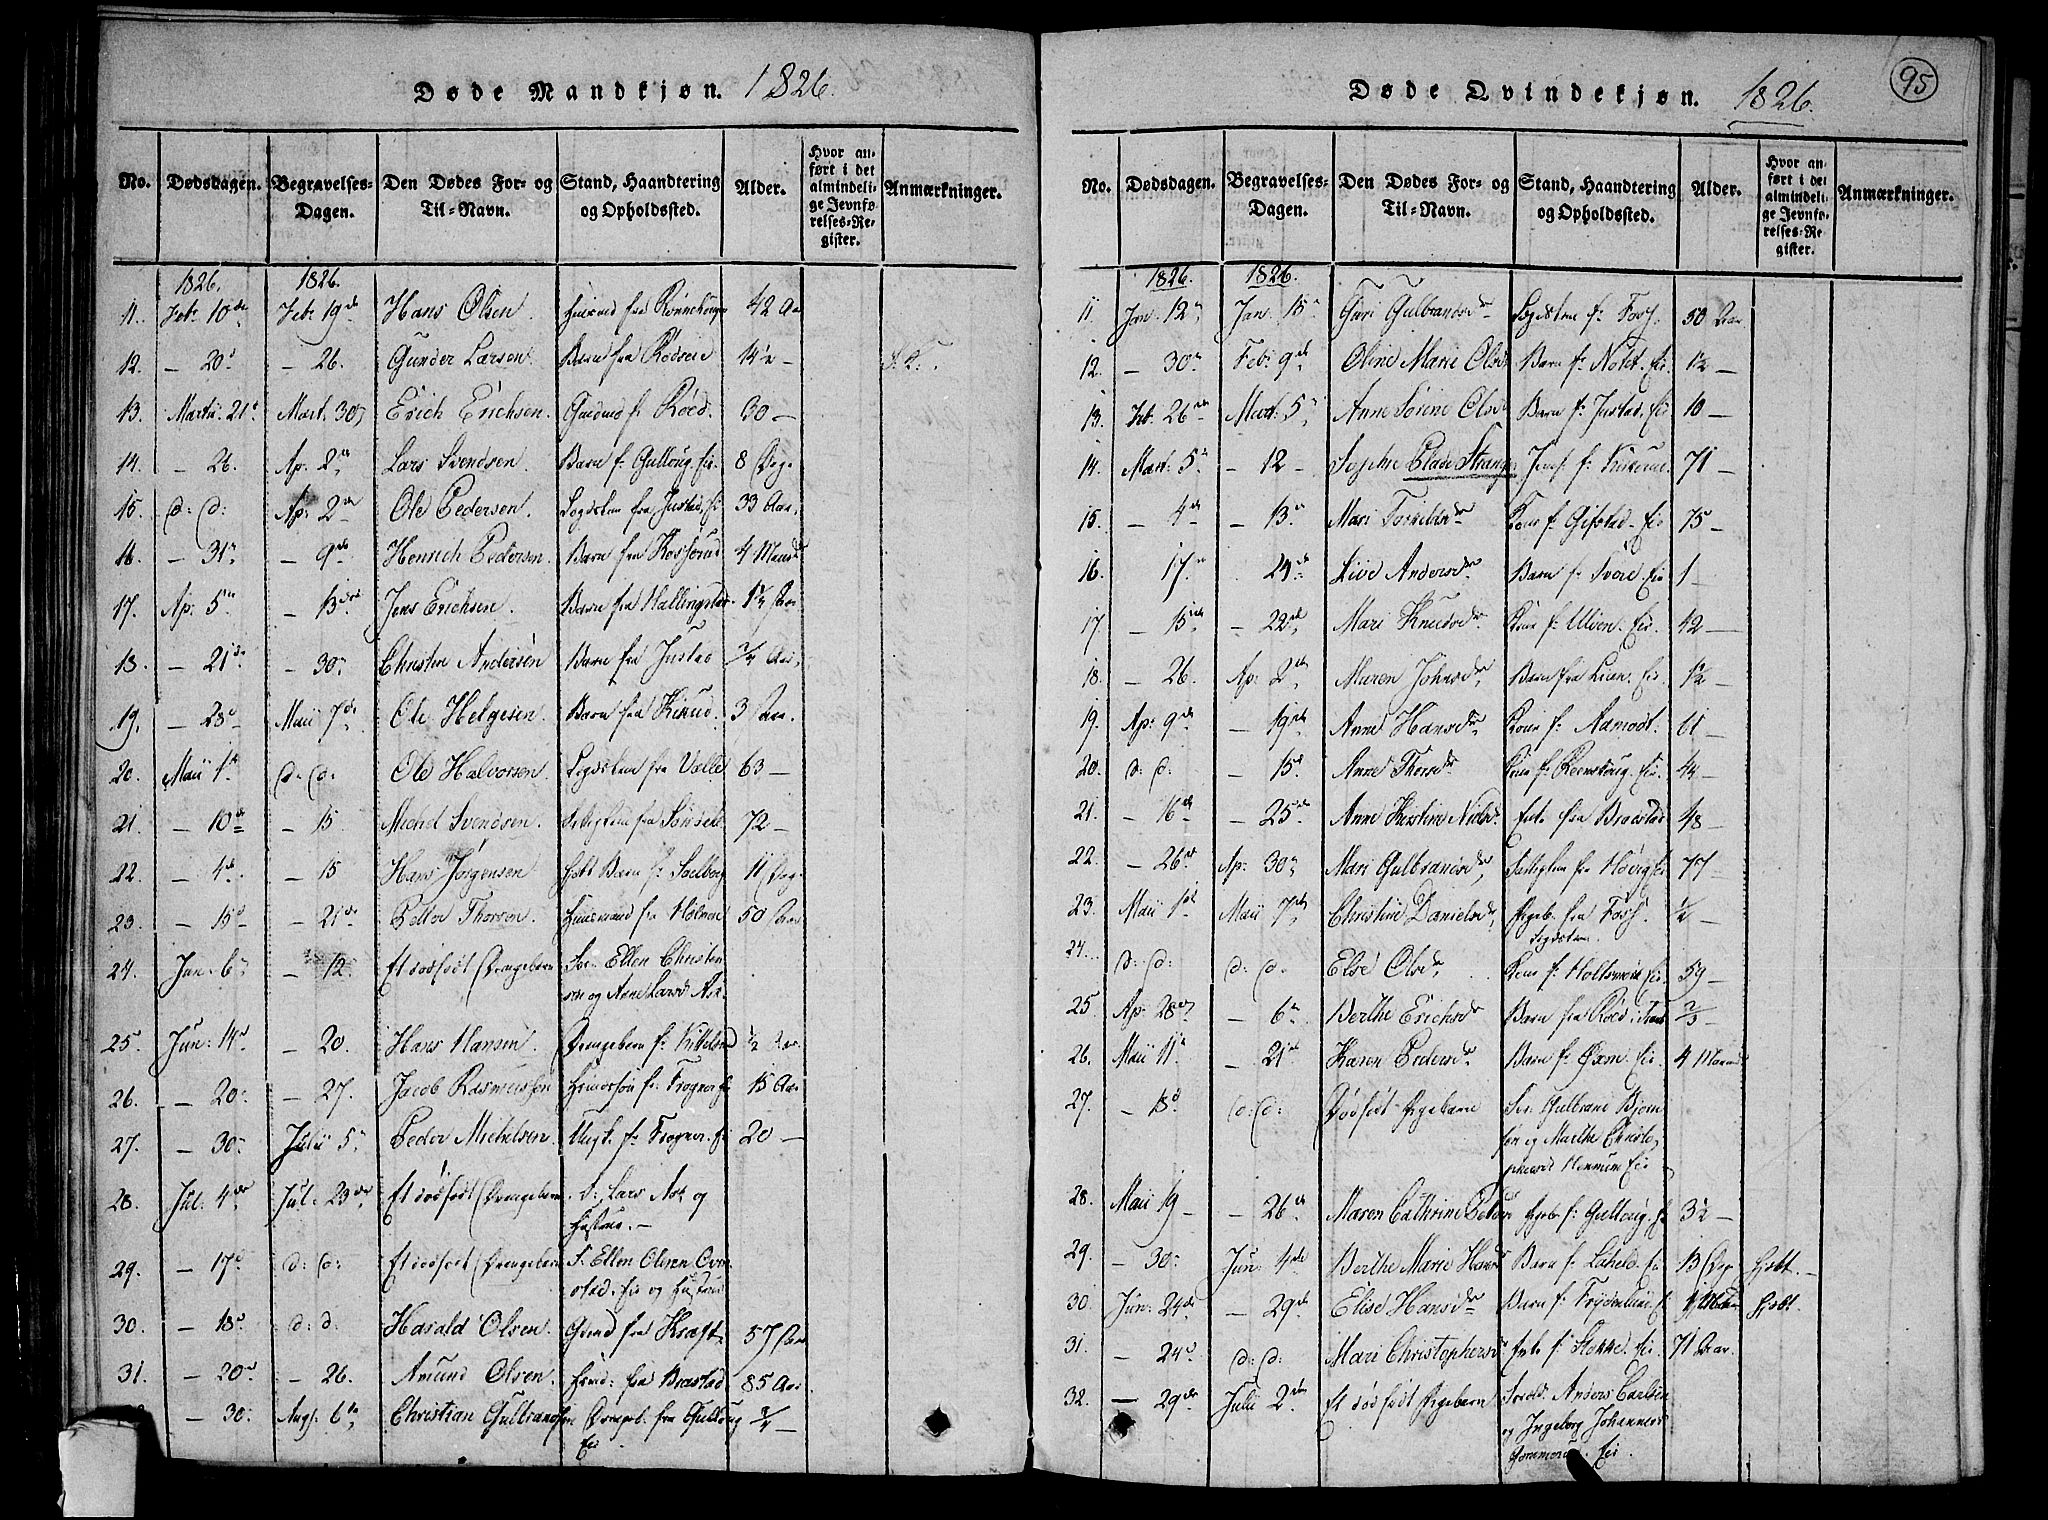 Døde Mandkjøn. 1826.
No. Dødsdagen. Begravelses-Dagen. Den Dødes For- og Til-Navn. Stand, Haandtering og Opholdssted. Alder. Hvor anført i det almindelige Jevnførelses-Register. Anmærkninger.
1826. 1826.
11. Feb: 10de Feb: 19de Hans Olsen. fra 42 Aar
12. — 20d — 26. Gunder Larsen. Barn fra Rødseie 14½ — S. K.
13. Martii 21d Mart. 30 Erich Erichsen. f: Röed. 30 —
14. — 26. Ap: 2den Lars Svendsen. Barn f: Gulloug. Eie. 8 Dage
15. d: d: Ap: 2de Ole Pedersen. Legdslem fra Justad. 33 Aar.
16. — 31te — 9de Henrich Pedersen. Barn fra 4 Maand
17. Ap: 5te — 13de Jens Erichsen. Barn fra Hallingstad 1¼ Aar
18. — 21de — 30. Christen Andersen Barn fra Justad ¾ Aar.
19. — 28d Maii 7de Ole Helgesen. Barn fra 3 Aar.
20. Maii 1te d: d: Ole Halvorsen. Legdslem fra Velle 63 —
21. — 10de — 15. Michel Svendsen. fra 72 —
22. — 4de — 15 Hans Jørgensen hjdt Barn f: Solberg 11 Dage
23. — 15d — 21de Peder Thorsen. Huusmand fra Holmen 50 Aar
24. Jun. 6te — 12 Et dødfødt Drengebarn For. Ellen Christen
sen og Anne Larsd. Ask.
25. Jun: 14d — 20. Hans Hansen. Drengebarn f: Kittelsrud ½ Aar
26. — 20. — 27. Jacob Rasmussen f: Frogner 15 Aar
27. — 30. Julii 5te Peder Michelsen. Ungk. f: Frogner. Eie 20 —
28. Jul: 4de Jul: 23de Et dødfødt Drengebarn. F: Lars Ask og
Hustrue. —
29. — 17d d: d: Et dødfødt Drengebarn F. Ellen Olsen
stad. Eie og Hustrue
30. — 18d d: d: Harald Olsen. Gmd fra Kraft. 57 Aar
31. — 20d — 26. Amund Olsen. fra Brastad 85 Aar
— 30. Aug: 6te Christian Gulbrandsen Drengeb. fra Gulloug ¾ —
Eie.
95
Døde Qvindekjøn. 1826.
No. Dødsdagen. Begravelses-Dagen. Den Dødes For- og Til-Navn. Stand, Haandtering og Opholdssted. Alder. Hvor anført i det almindelige Jevnførelses-Register. Anmærkninger.
1826. 1826.
11 Jan. 12te Jan. 15te Guri Gulbrandsdr Legdslem f: Foss. 50 Aar
12. — 30te Feb: 9de Oline Marie Olsdr Barn f: Eie. 1½ —
13. Feb. 26de Mart: 5te Anne Sørine Olsdr Barn f: Justad. Eie 10 —
14. Mart: 5te — 12 — Sophie Blade Stranger Jomf. f: 71 —
15. — 4de — 13de Mari Torkeldsdr Kone f: Gifstad. Eie 75 —
16. 17de 24de Live Andersdr Barn f: Svere Eie 1 —
17. — 15de — 22de Mari Knudsdr Kone f: Ulven. Eie. 42 —
18. — 26. Ap: 2den Maren Johnsdr Barn fra Lien. Eie. 1½
19. Ap: 9de — 19de Anne Hansdr Kone f: Aamodt. 61 —
20. d: d: — 15d Anne Thorsdr Kone f: Eie. 44 —
21. — 16de — 25de Anne Kirstine Nielsdr Enke fra Brastad 48 —
22. — 26de Ap: 30te Mari Gulbrandsdr f: Høeeg Eie 77 —
23. Maii 1de Maii 7de Christine Danielsdr Pigeb. fra Foss ½ —
24. d: d: d: d: Else Olsdr Legdslem. Kone f: Eie. 59 —
25. Ap: 28de — 6te Berthe Erichsdr Barn fra Röed i ⅔ —
26. Maii 11te — 21de Karen Pedersdr Barn f: Oxen. Eie. 4 Maand
27. — 18d d: d: Dødfødt Pigebarn For. Gulbrand Bjørn
sen og Marthe Christo
phersd. Hennum Eie
28. Maii 19 — — 26de Maren Cathrine Peders Pigeb f: Gulloug. 32 —
29. — 30. Jun: 4de Berthe Marie Hansd Barn f: Eie 13 Dage hjdt. —
30. Jun: 24de — 29de Elise Hansdr Barn f: Frydenlund Eie hjdt.
31. — 24d d: d: Mari Christophersdr Enke f: Stokke. Eie. 71 Aar.
32. — 29de Julii 2den Et død født Pigebarn Foræld. Anders Carlsen
og Ingeborg Johannesd
Eie.